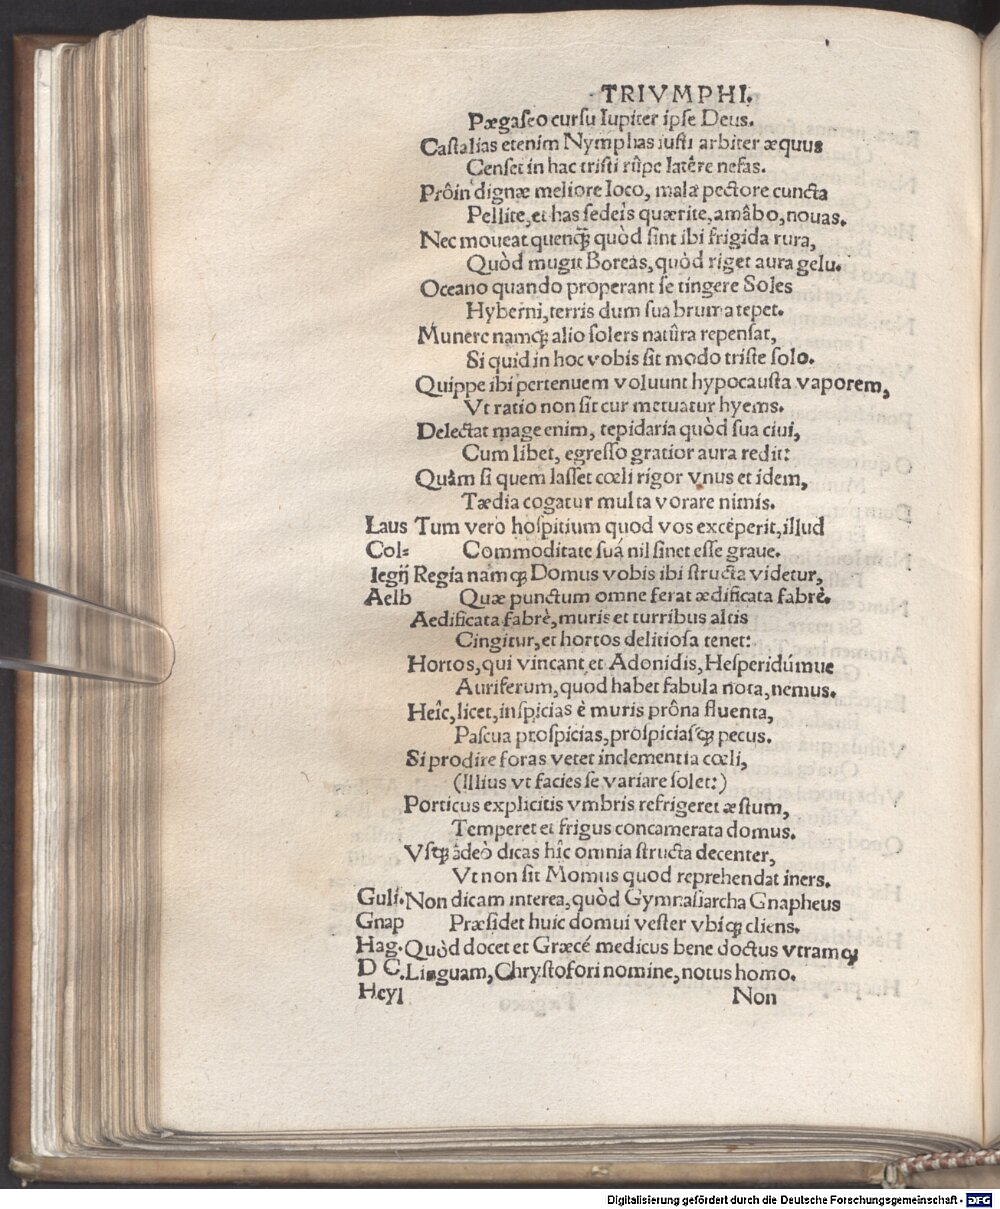 TRIVMPHI.
Pægaſeo curſu Iupiter ipſe Deus.
Caſtalias etenim Nymphas iuſti arbiter æquus
Cenſet in hac triſti rûpe latêre nefas.
Prôin dignæ meliore loco, mala pectore cuncta
Pellite, et has ſedeis quærite, amâbo, nouas.
Nec moueat quenq̃; quòd ſint ibi frigida rura,
Quòd mugit Boreas, quòd riget aura gelu.
Oceano quando properant ſe tingere Soles
Hyberni, terris dum ſua bruma tepet.
Munere namq; alio ſolers natûra repenſat,
Si quid in hoc vobis ſit modo triſte ſolo.
Quippe ibi pertenuem voluunt hypocauſta vaporem,
Vt ratio non ſit cur metuatur hyems.
Delectat mage enim, tepidaria quòd ſua ciui,
Cum libet, egreſſo gratior aura redit:
Quàm ſi quem laſſet cœli rigor vnus et idem,
Tædia cogatur multa vorare nimis.
Laus Tum vero hoſpitium quod vos excêperit, illud
Col= Commoditate ſuá nil ſinet eſſe graue.
legij Regia namq; Domus vobis ibi ſtructa videtur,
Aelb Quæ punctum omne ferat ædificata fabrè.
Aedificata fabrè, muris et turribus altis
Cingitur, et hortos delitioſa tenet:
Hortos, qui vincant et Adonidis, Heſperidúmue
Auriferum, quod habet fabula nota, nemus.
Heîc, licet, inſpicias è muris prôna fluenta,
Paſcua proſpicias, proſpiciaſq; pecus.
Si prodire foras vetet inclementia cœli,
(Illius vt facies ſe variare ſolet:)
Porticus explicitis vmbris refrigeret æſtum,
Temperet et frigus concamerata domus.
Vſq; àdeò dicas hîc omnia ſtructa decenter,
Vt non ſit Momus quod reprehendat iners.
Gulſ. Non dicam interea, quòd Gymnaſiarcha Gnapheus
Gnap Præſidet huic domui veſter vbiq; cliens.
Hag. Quòd docet et Græcé medicus bene doctus vtramq;
D C. Linguam, Chryſtofori nomine, notus homo.
Heyl Non
Digitalisierung gefördert durch die Deutsche Forschungsgemeinschaft - DFG